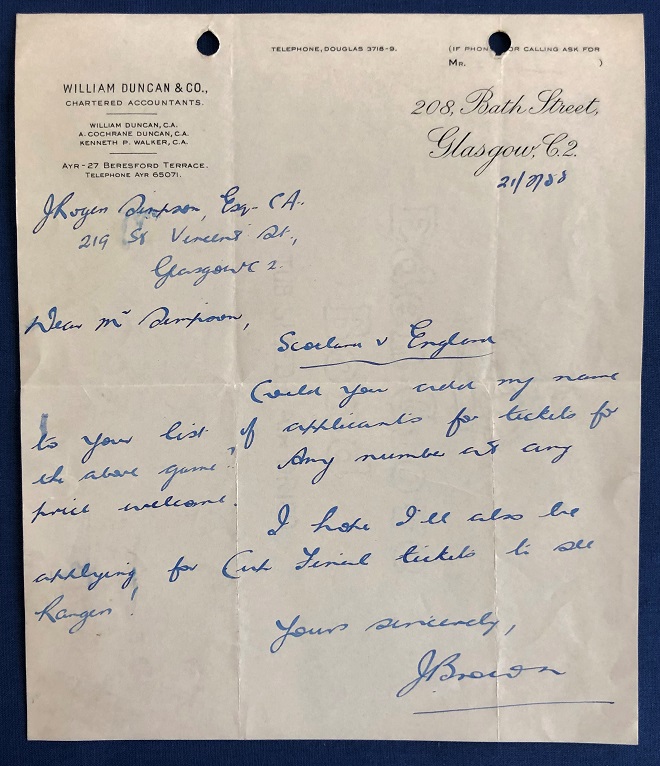 TELEPHONE, DOUGLAS 3718-9.
(IF PHONING OR CALLING ASK FOR
MR. )
WILLIAM DUNCAN & CO.,
CHARTERED ACCOUNTANTS.
WILLIAM DUNCAN, C.A.
A. COCHRANE DUNCAN, C.A.
KENNETH P. WALKER, C.A.
AYR - 27 BERESFORD TERRACE.
TELEPHONE AYR 65071.
208, Bath Street,
Glasgow, C.2.
J Roger Simpson, Esq. C.A.
219 St Vincent St.,
Glasgow C 2.
Dear Mr Simpson,
Scotland v England
Could you add my name
to your list of applicants for tickets for
the above game? Any number at any
price welcome.
I hope I'll also be
applying for Cup Final tickets to see
Rangers!
Yours sincerely,
J Brown